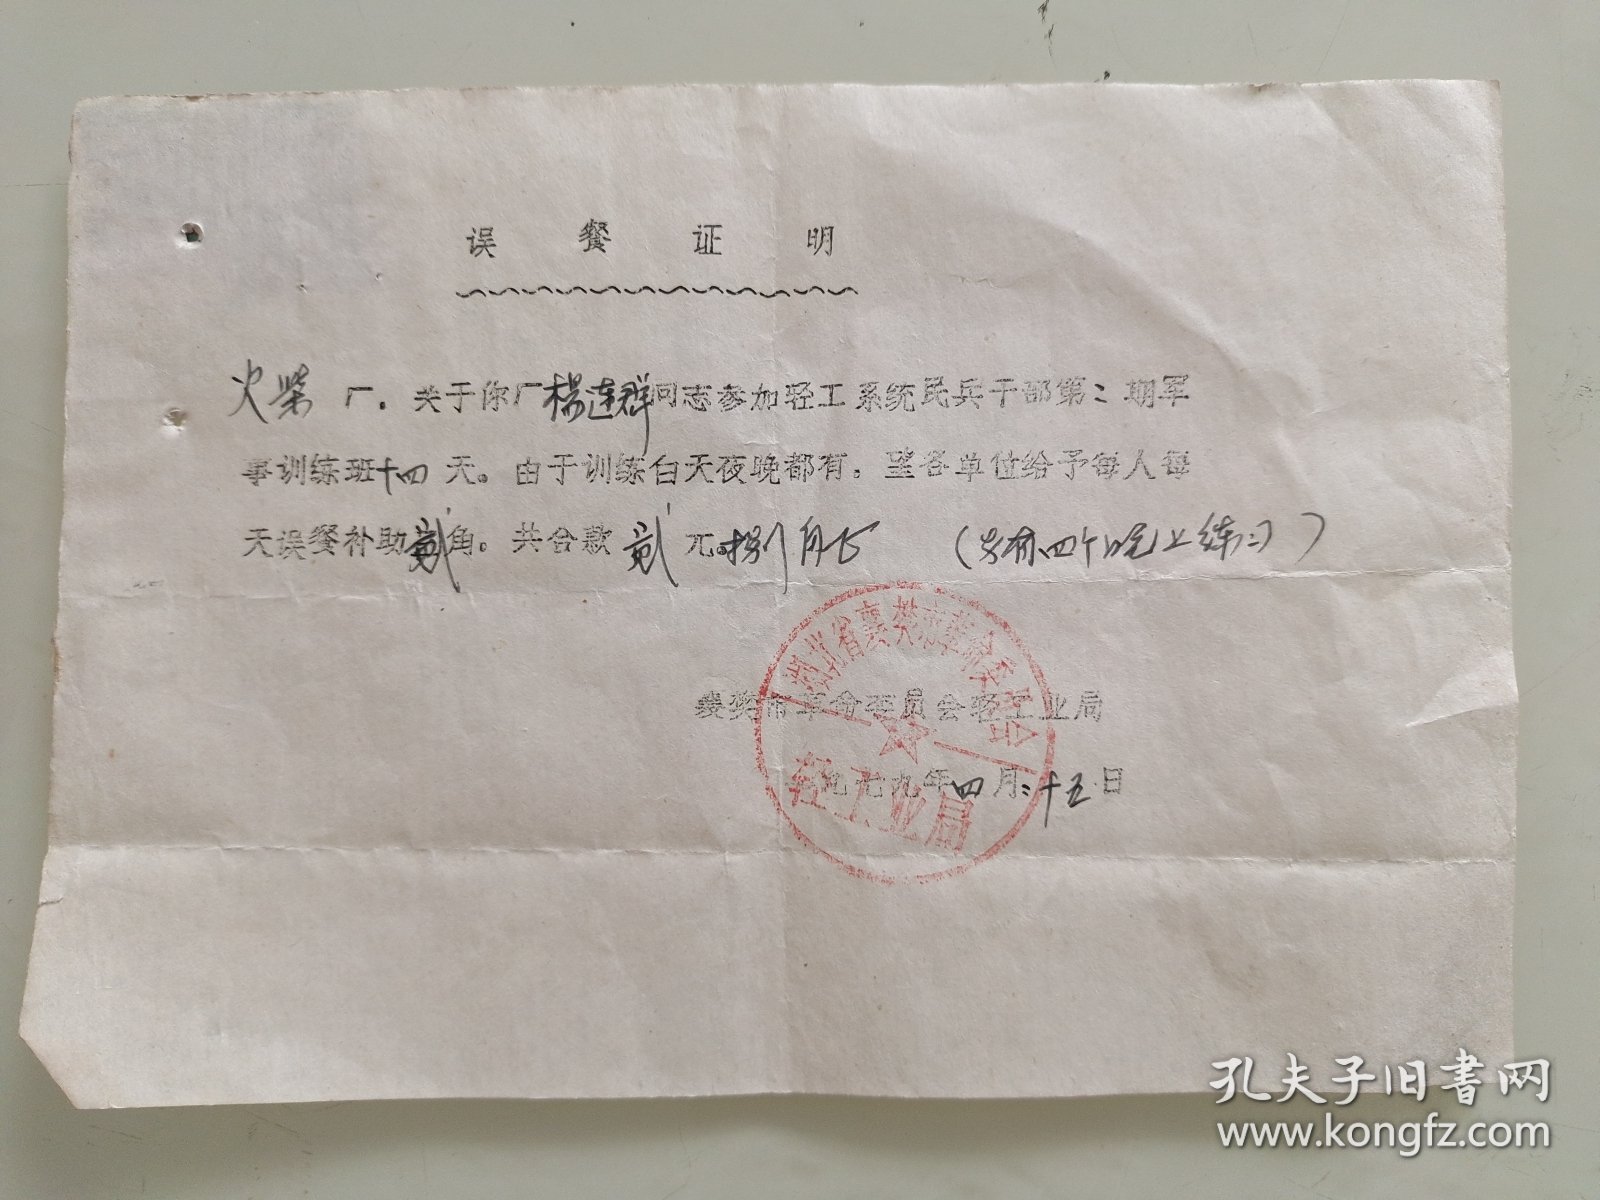 误餐证明
火柴厂．关于你厂杨连群同志参加轻工系统民兵干部第二期军
事训练班十四天。由于训练白天夜晚都有．望各单位给予每人每
天误餐补助贰角。共合款贰元捌角正（共有四个晚上练习）
湖北省襄樊市革命委员会
轻工业局
襄樊市革命委员会轻工业局
九七九年四月二十五日
孔夫子旧书网
www.kongfz.com